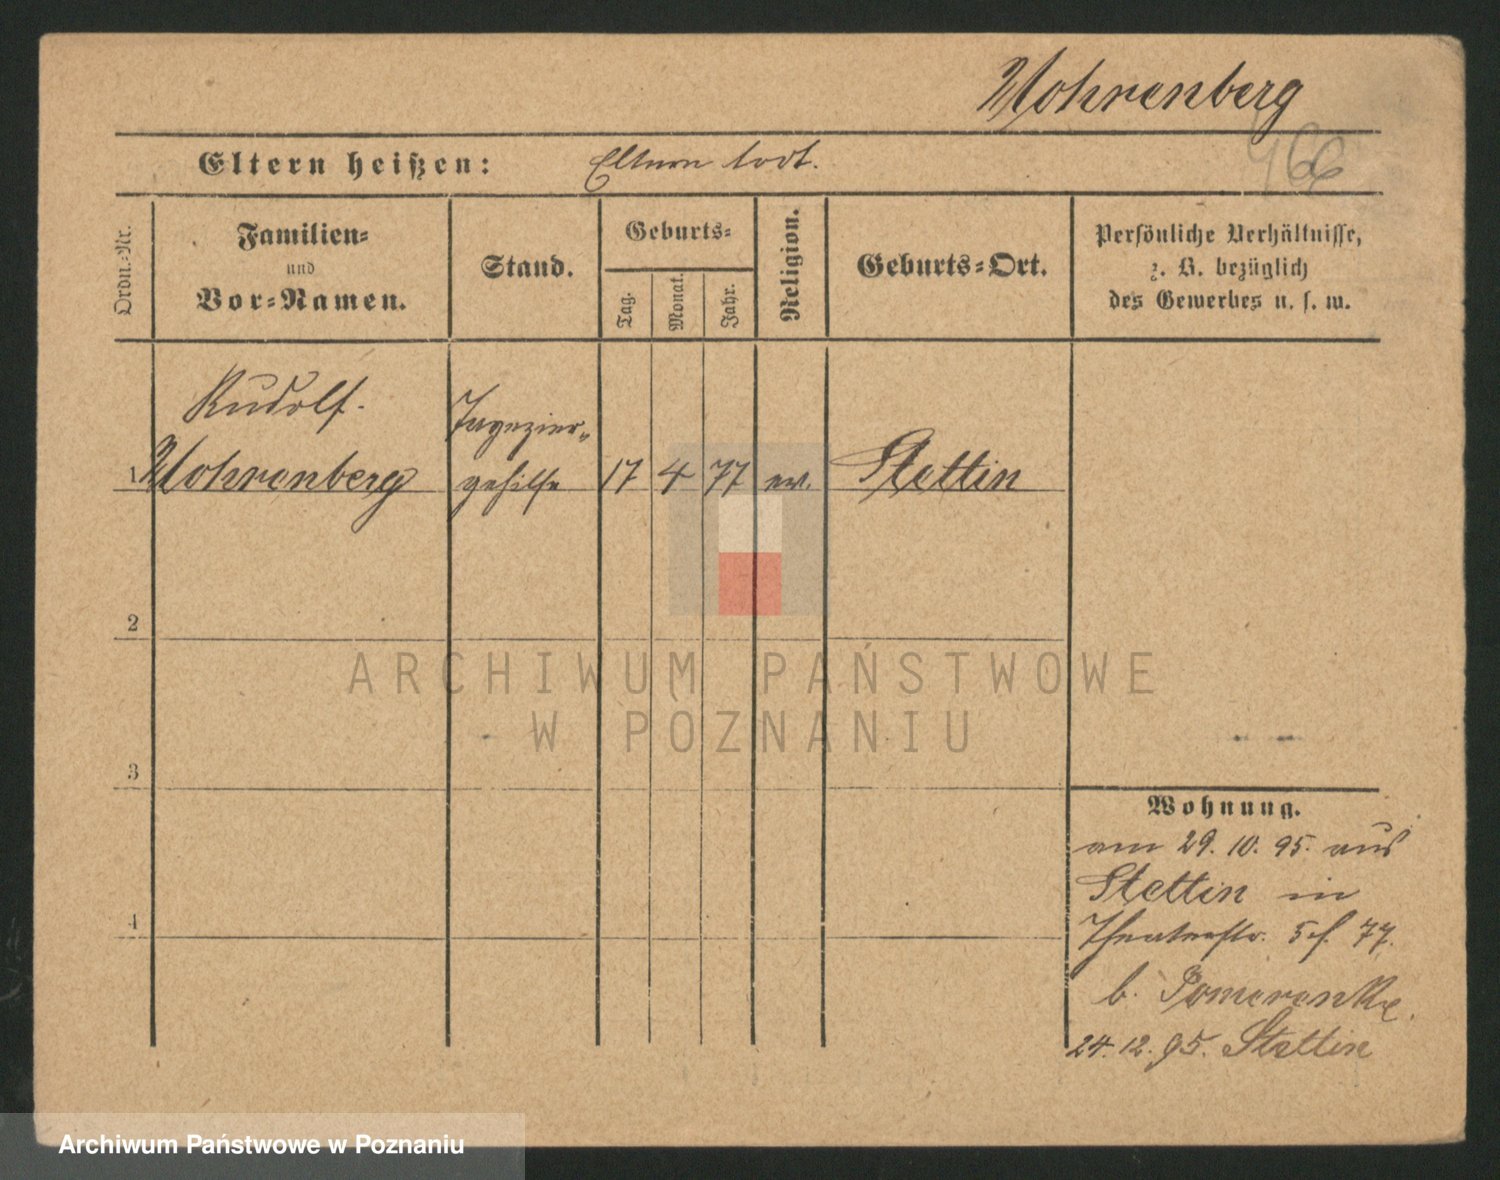 Mohrenberg
466
Eltern heißen: Eltern todt.
Ordn.-Nr.
Familien-
und
Vor-Namen.
Stand.
Geburts-
Tag.
Monat.
Jahr.
Religion.
Geburts-Ort.
Persönliche Verhältnisse,
z. B. bezüglich
des Gewerbes u. s. w.
Rudolf
Tapezier-
1 Mohrenberg gehilfe 17 4 77 ev. Stettin
2
ARCHIWUM PAŃSTWOWE
W POZNANIU
3
Wohnung.
am 29. 10. 95. aus
Stettin in
4
Theaterstr. 5
b. Pomerenke.
24. 12. 95. Stettin
Archiwum Państwowe w Poznaniu